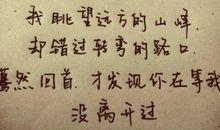 我眺望远方的山峰
却错过转弯的路口
蓦然回首,才发现你在等我
没离开过